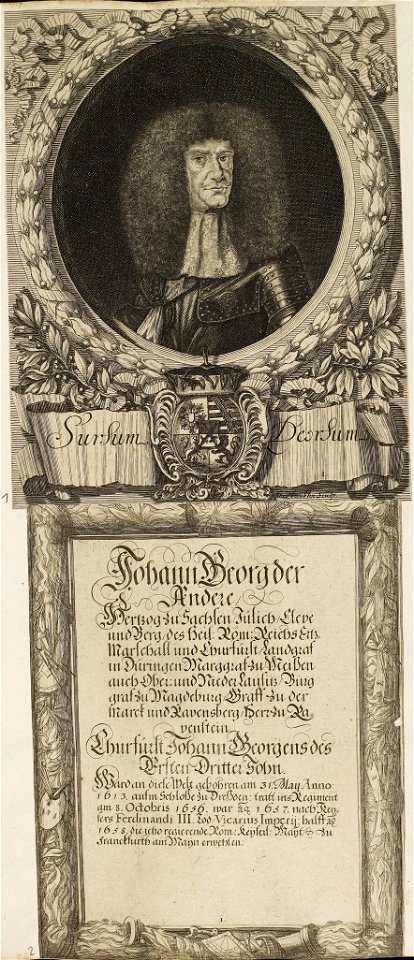 Sursum Deorsum
1
Johann Georg der
Andere,
Hertzog zu Sachsen Jülich Cleve
und Berg, des Heil: Röm: Reichs Ertz
Marschall und Churfürst, Landgraf
in Düringen Marggraf zu Meißen
auch Ober: und Nieder Lausitz Burg
graf zu Magdeburg Graff zu der
Marck und Ravensberg, Herr zu Ra
venstein
Churfürst Johann Georgens des
Ersten Dritter Sohn.
Ward an diese Welt gebohren am 31. May Anno
1613. aufm Schloße zu Dreßden: tratt ins Regiment
am 8. Octobris 1656. war 1657. nach Key
sers Ferdinandi III. Tod Vicarius Imperij: halff
1658. die jetzo regierende Röm: Keyserl: Mayt: zu
Franckfurth am Mayn erwehlen:
1
2